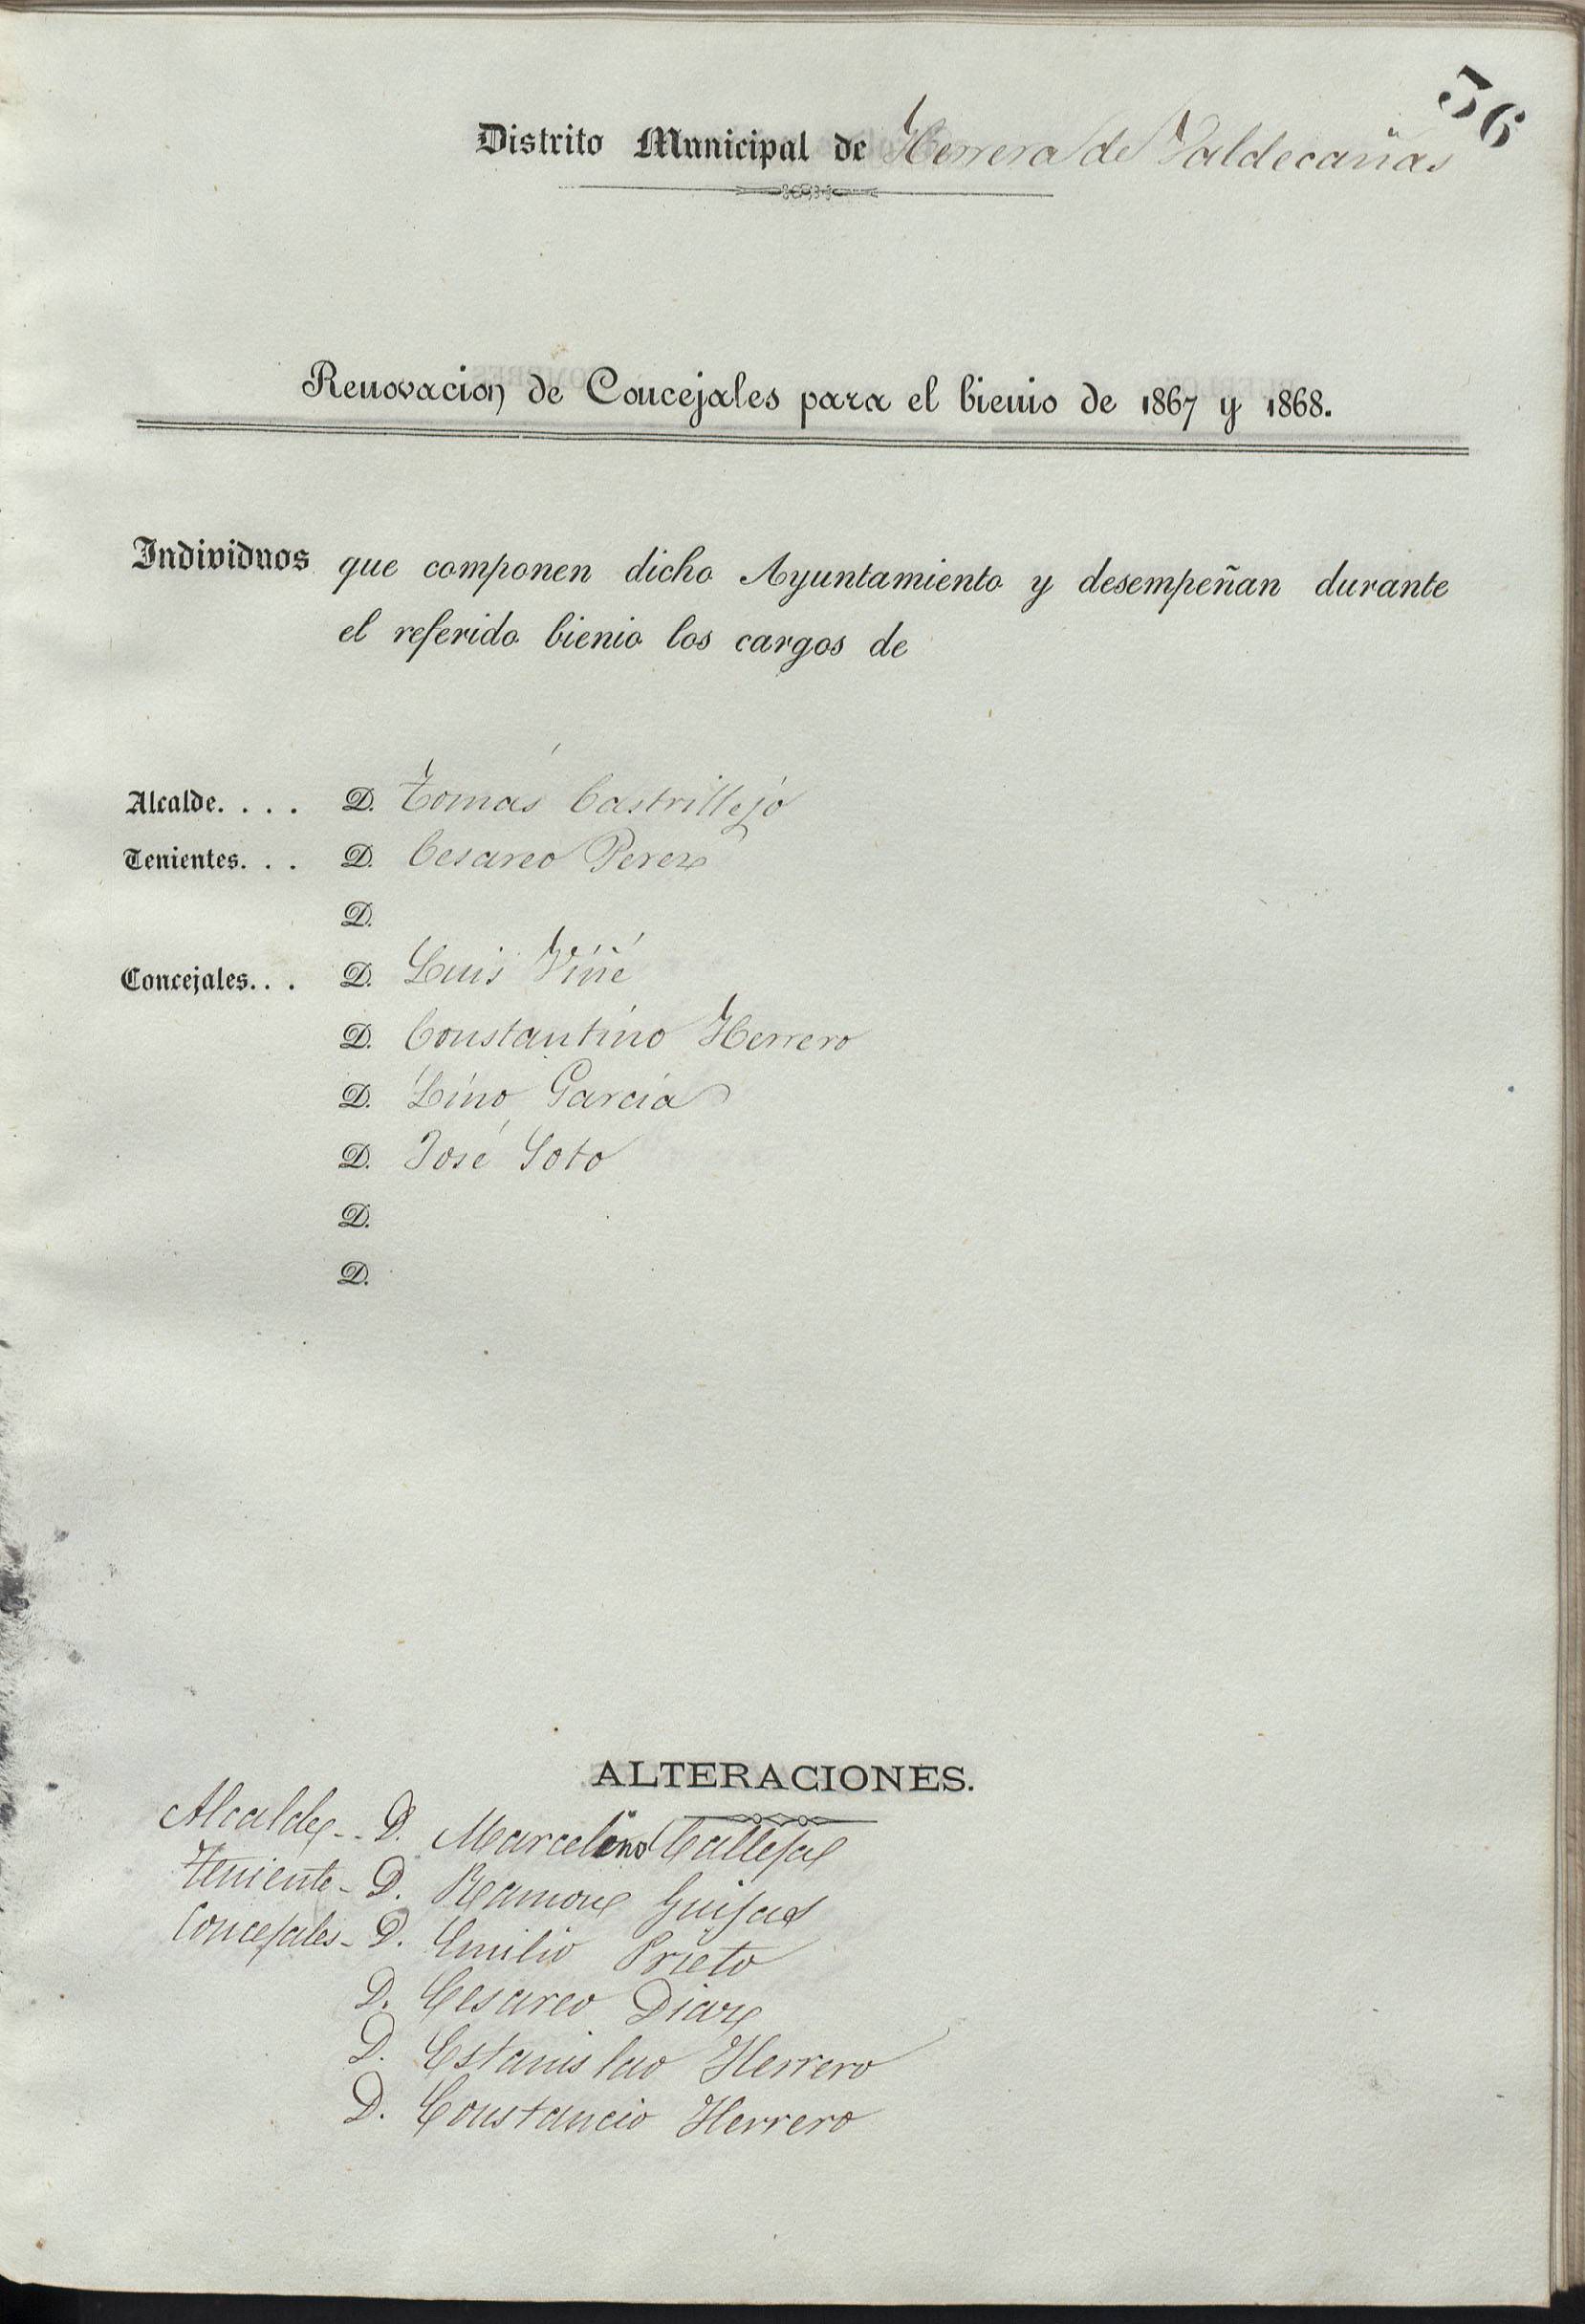 56
Distrito Municipal de Herrera de Valdecañas
Renovacion de Concejales para el bienio de 1867 y 1868.
Individuos que componen dicho Ayuntamiento y desempeñan durante
el referido bienio los cargos de
Alcalde. . . . D. Tomás Castrillejo
Tenientes. . . D. Cesareo Perez
D.
Concejales. . . D. Luis Viñé
D. Constantino Herrero
D. Lino Garcia
D. José Soto
D.
D.
ALTERACIONES.
Alcalde -- D. Marcelino Calleja
Teniente - D. Ramon Guijas
Concejales - D. Emilio Prieto
D. Cesareo Diaz
D. Estanislao Herrero
D. Constancio Herrero